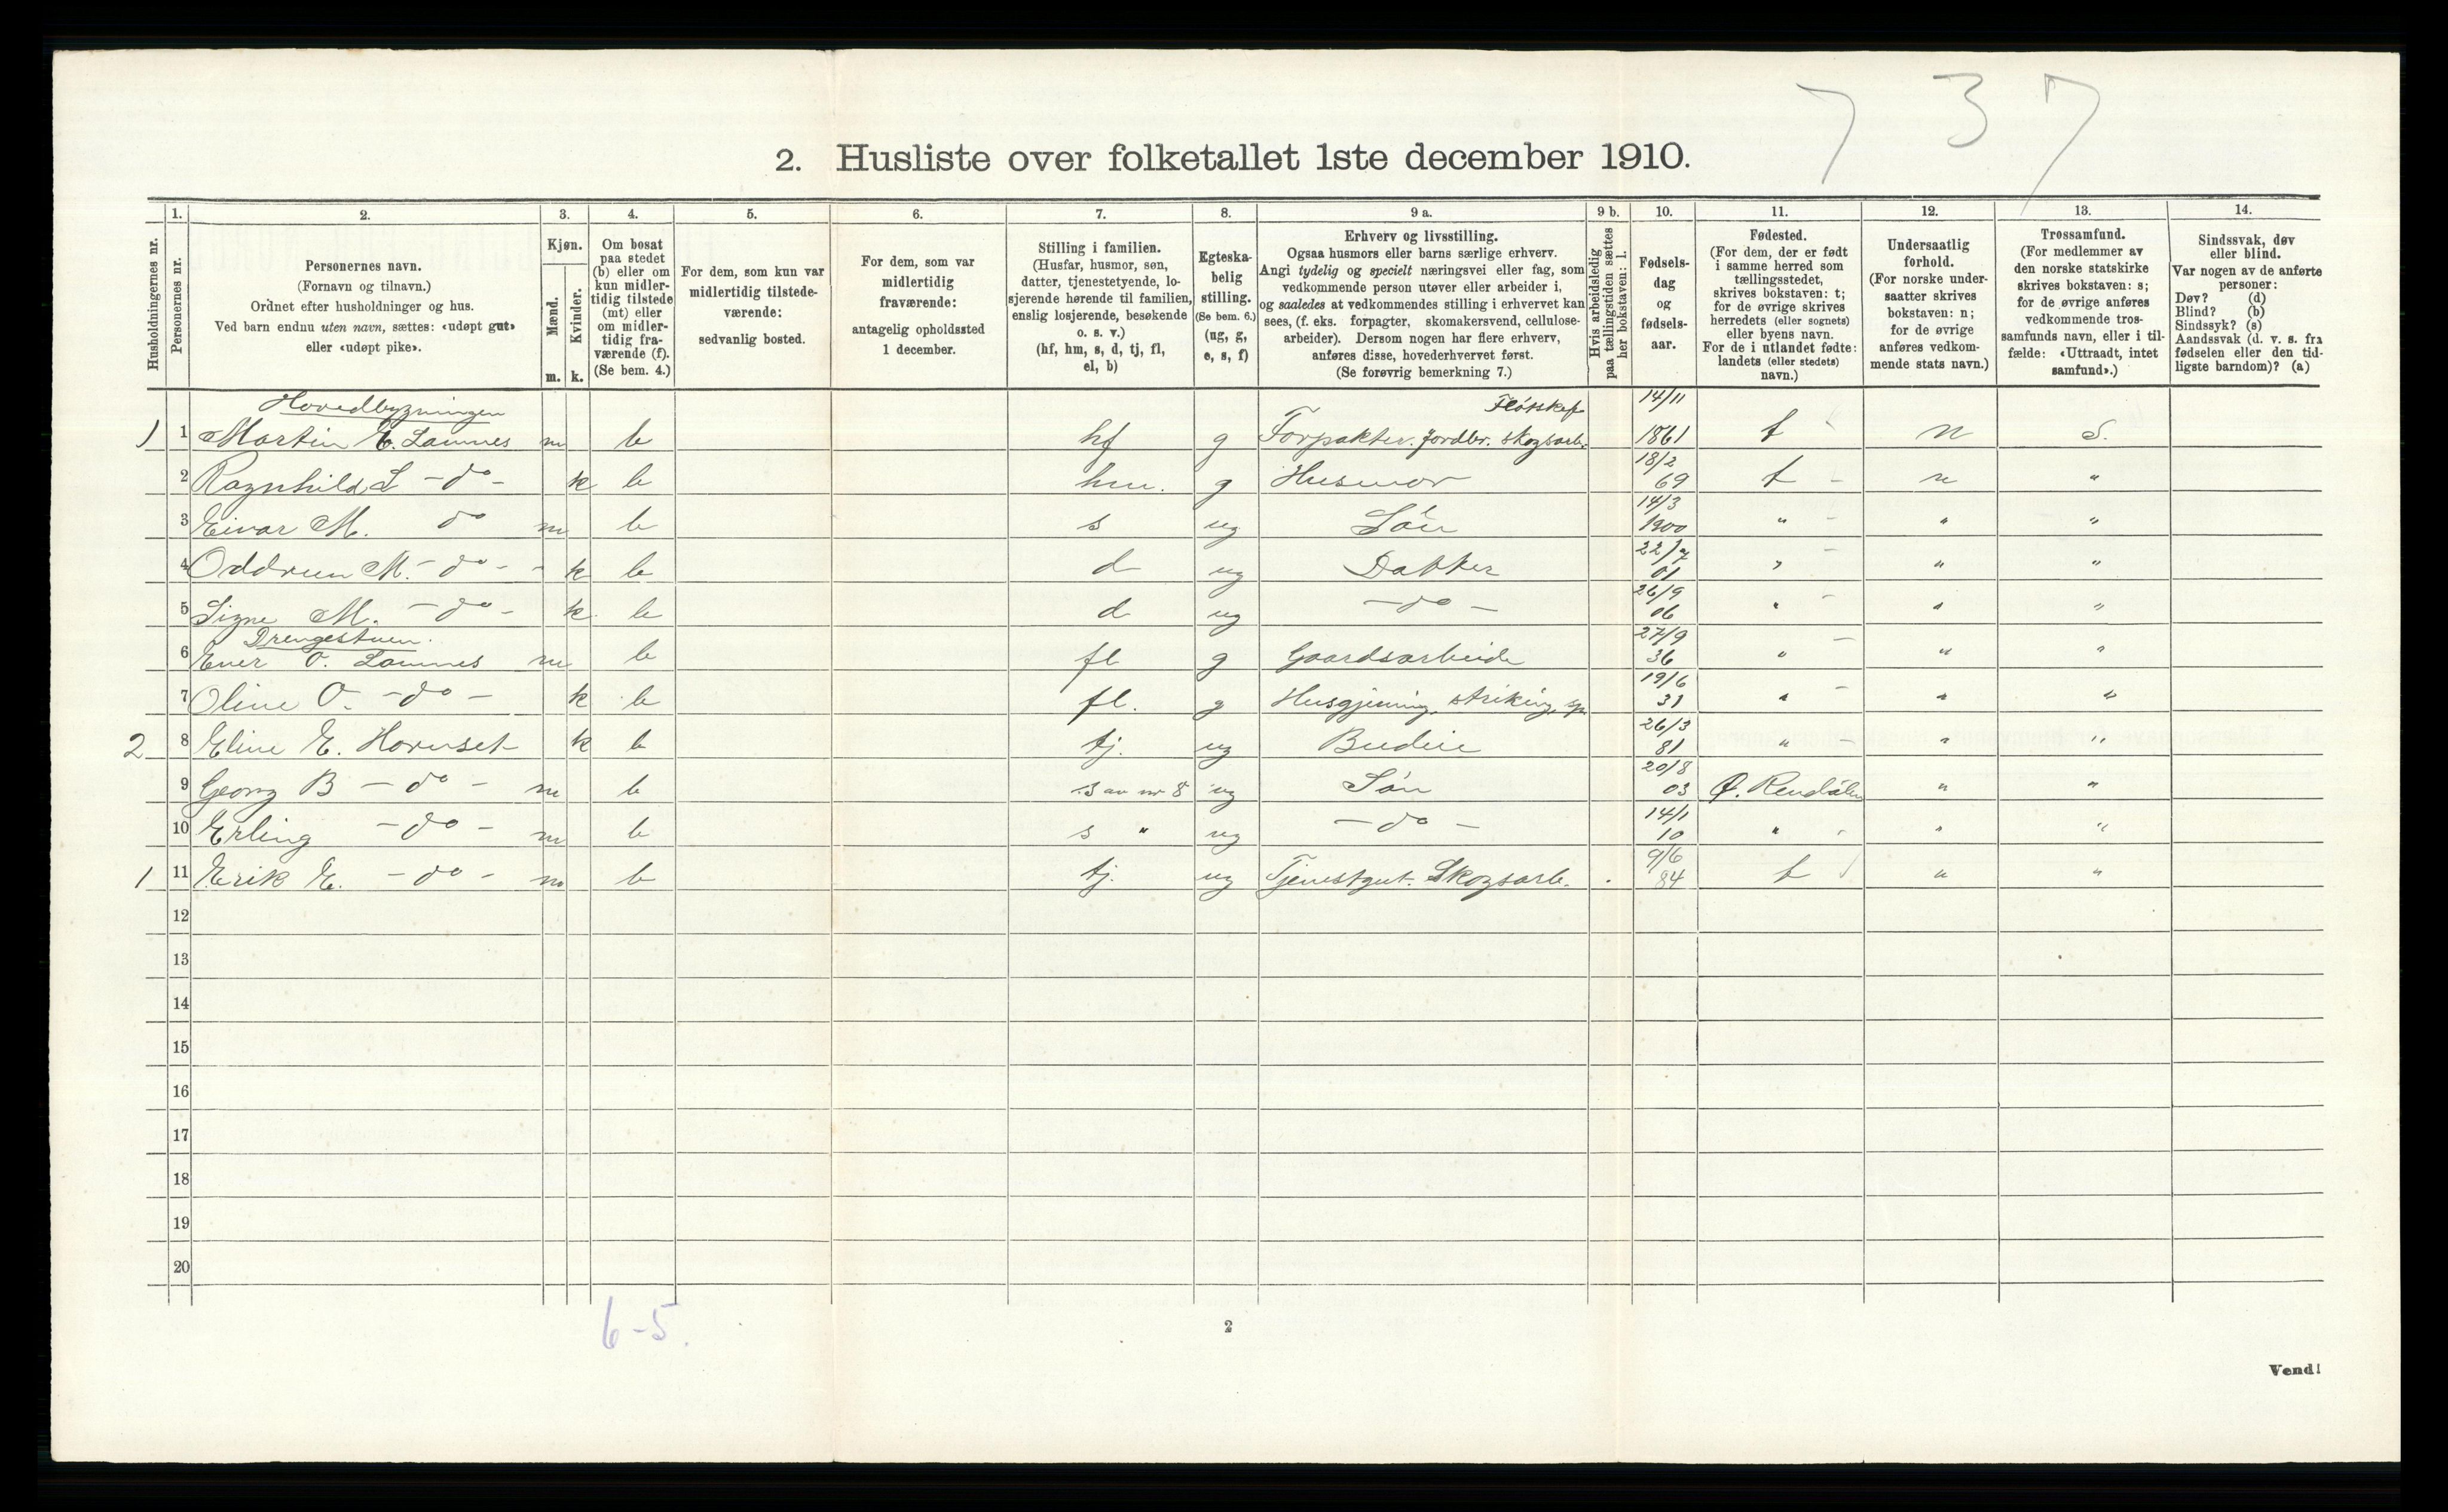 7 3 7
2. Husliste over folketallet 1ste december 1910.
Husholdningernes nr.
1. Personernes nr.
2. Personernes navn.
(Fornavn og tilnavn.)
Ordnet efter husholdninger og hus.
Ved barn endnu uten navn, sættes: «udøpt gut»
eller «udøpt pike».
3. Kjøn.
Mænd. m.
Kvinder. k.
4. Om bosat
paa stedet
(b) eller om
kun midler-
tidig tilstede
(mt) eller
om midler-
tidig fra-
værende (f).
(Se bem. 4.)
5. For dem, som kun var
midlertidig tilstede-
værende:
sedvanlig bosted.
6. For dem, som var
midlertidig
fraværende:
antagelig opholdssted
1 december.
7. Stilling i familien.
(Husfar, husmor, søn,
datter, tjenestetyende, lo-
sjerende hørende til familien,
enslig losjerende, besøkende
o. s. v.)
(hf, hm, s, d, tj, fl,
el, b)
8. Egteska-
belig
stilling.
(Se bem. 6.)
(ug, g,
e, s, f)
9 a. Erhverv og livsstilling.
Ogsaa husmors eller barns særlige erhverv.
Angi tydelig og specielt næringsvei eller fag, som
vedkommende person utøver eller arbeider i,
og saaledes at vedkommendes stilling i erhvervet kan
sees, (f. eks. forpagter, skomakersvend, cellulose-
arbeider). Dersom nogen har flere erhverv,
anføres disse, hovederhvervet først.
(Se forøvrig bemerkning 7.)
9 b. Hvis arbeidsledig
paa tællingstiden sættes
her bokstaven: l.
10. Fødsels-
dag
og
fødsels-
aar.
11. Fødested.
(For dem, der er født
i samme herred som
tællingsstedet,
skrives bokstaven: t;
for de øvrige skrives
herredets (eller sognets)
eller byens navn.
For de i utlandet fødte:
landets (eller stedets)
navn.)
12. Undersaatlig
forhold.
(For norske under-
saatter skrives
bokstaven: n;
for de øvrige
anføres vedkom-
mende stats navn.)
13. Trossamfund.
(For medlemmer av
den norske statskirke
skrives bokstaven: s;
for de øvrige anføres
vedkommende tros-
samfunds navn, eller i til-
fælde: «Uttraadt, intet
samfund».)
14. Sindssvak, døv
eller blind.
Var nogen av de anførte
personer:
Døv? (d)
Blind? (b)
Sindssyk? (s)
Aandssvak (d. v. s. fra
fødselen eller den tid-
ligste barndom)? (a)
Hovedbygningen
1 1 Martin E. Lomnes m b hf g Forpakter. Jordbr. skogsarb. 14/11 1861 t n S.
2 Ragnhild L - do - k b hm. g Husmor 18/2 69 t - n "
3 Eivar M. do m b s ug Søn 14/3 1900 " - " "
4 Oddrun M. - do - - k b d ug Datter 22/7 01 " - " "
5 Signe M. - do - k. b d ug - do - 26/9 06 " - " "
Drengestuen.
6 Ener O. Lomnes m b fl g Gaardsarbeide 27/9 36 " - " "
7 Oline O. - do - k b fl. g Husgjerning, strikning, sp 19/6 31 " - " "
2 8 Eline E. Hornset k b tj. ug Budeie 26/3 81 " - " "
9 Georg B - do - m b s av nr 8 ug Søn 20/8 03 Ø. Rendalen " "
10 Erling - do - m b s " ug - do - 14/1 10 " " "
1 11 Erik E. - do - m b tj. ug Tjenestgut. Skogsarb. 9/6 84 t " "
12
13
14
15
16
17
18
19
20
6-5.
2
Vend!